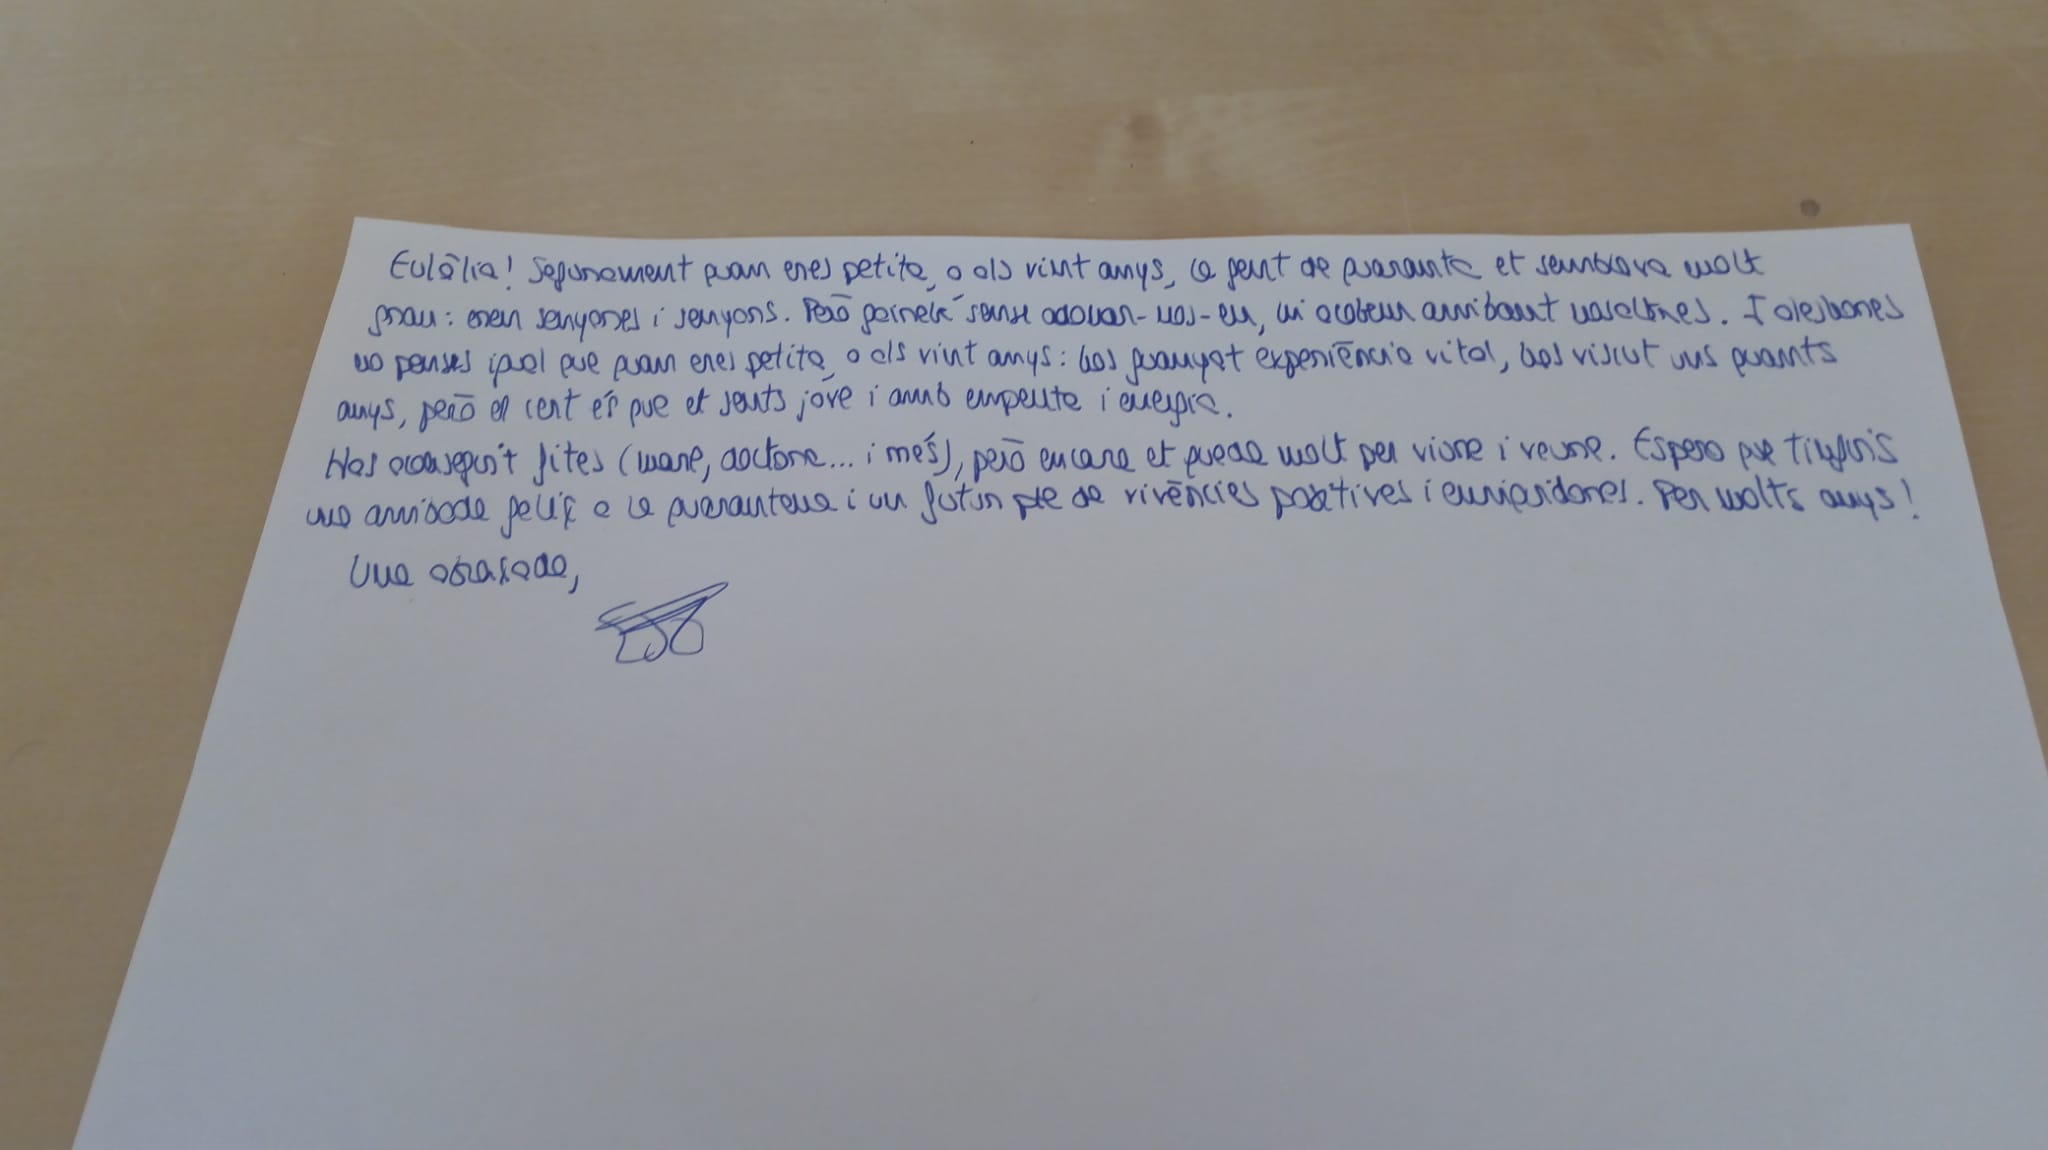 Eulàlia! Segurament quan eres petita, o als vint anys, la gent de quaranta et semblava molt
grau: eren senyores i senyors. Però gairebé sense adonar-nos-en, hi acabem arribant nosaltres. I aleshores
no penses igual que quan eres petita, o als vint anys: has guanyat experiència vital, has viscut uns quants
anys, però el cert és que et sents jove i amb empenta i energia.
Has aconseguit fites (mare, doctora... i més), però encara et queda molt per viure i veure. Espero que tinguis
una arribada feliç a la quarantena i un futur ple de vivències positives i enriquidores. Per molts anys!
Una abraçada,